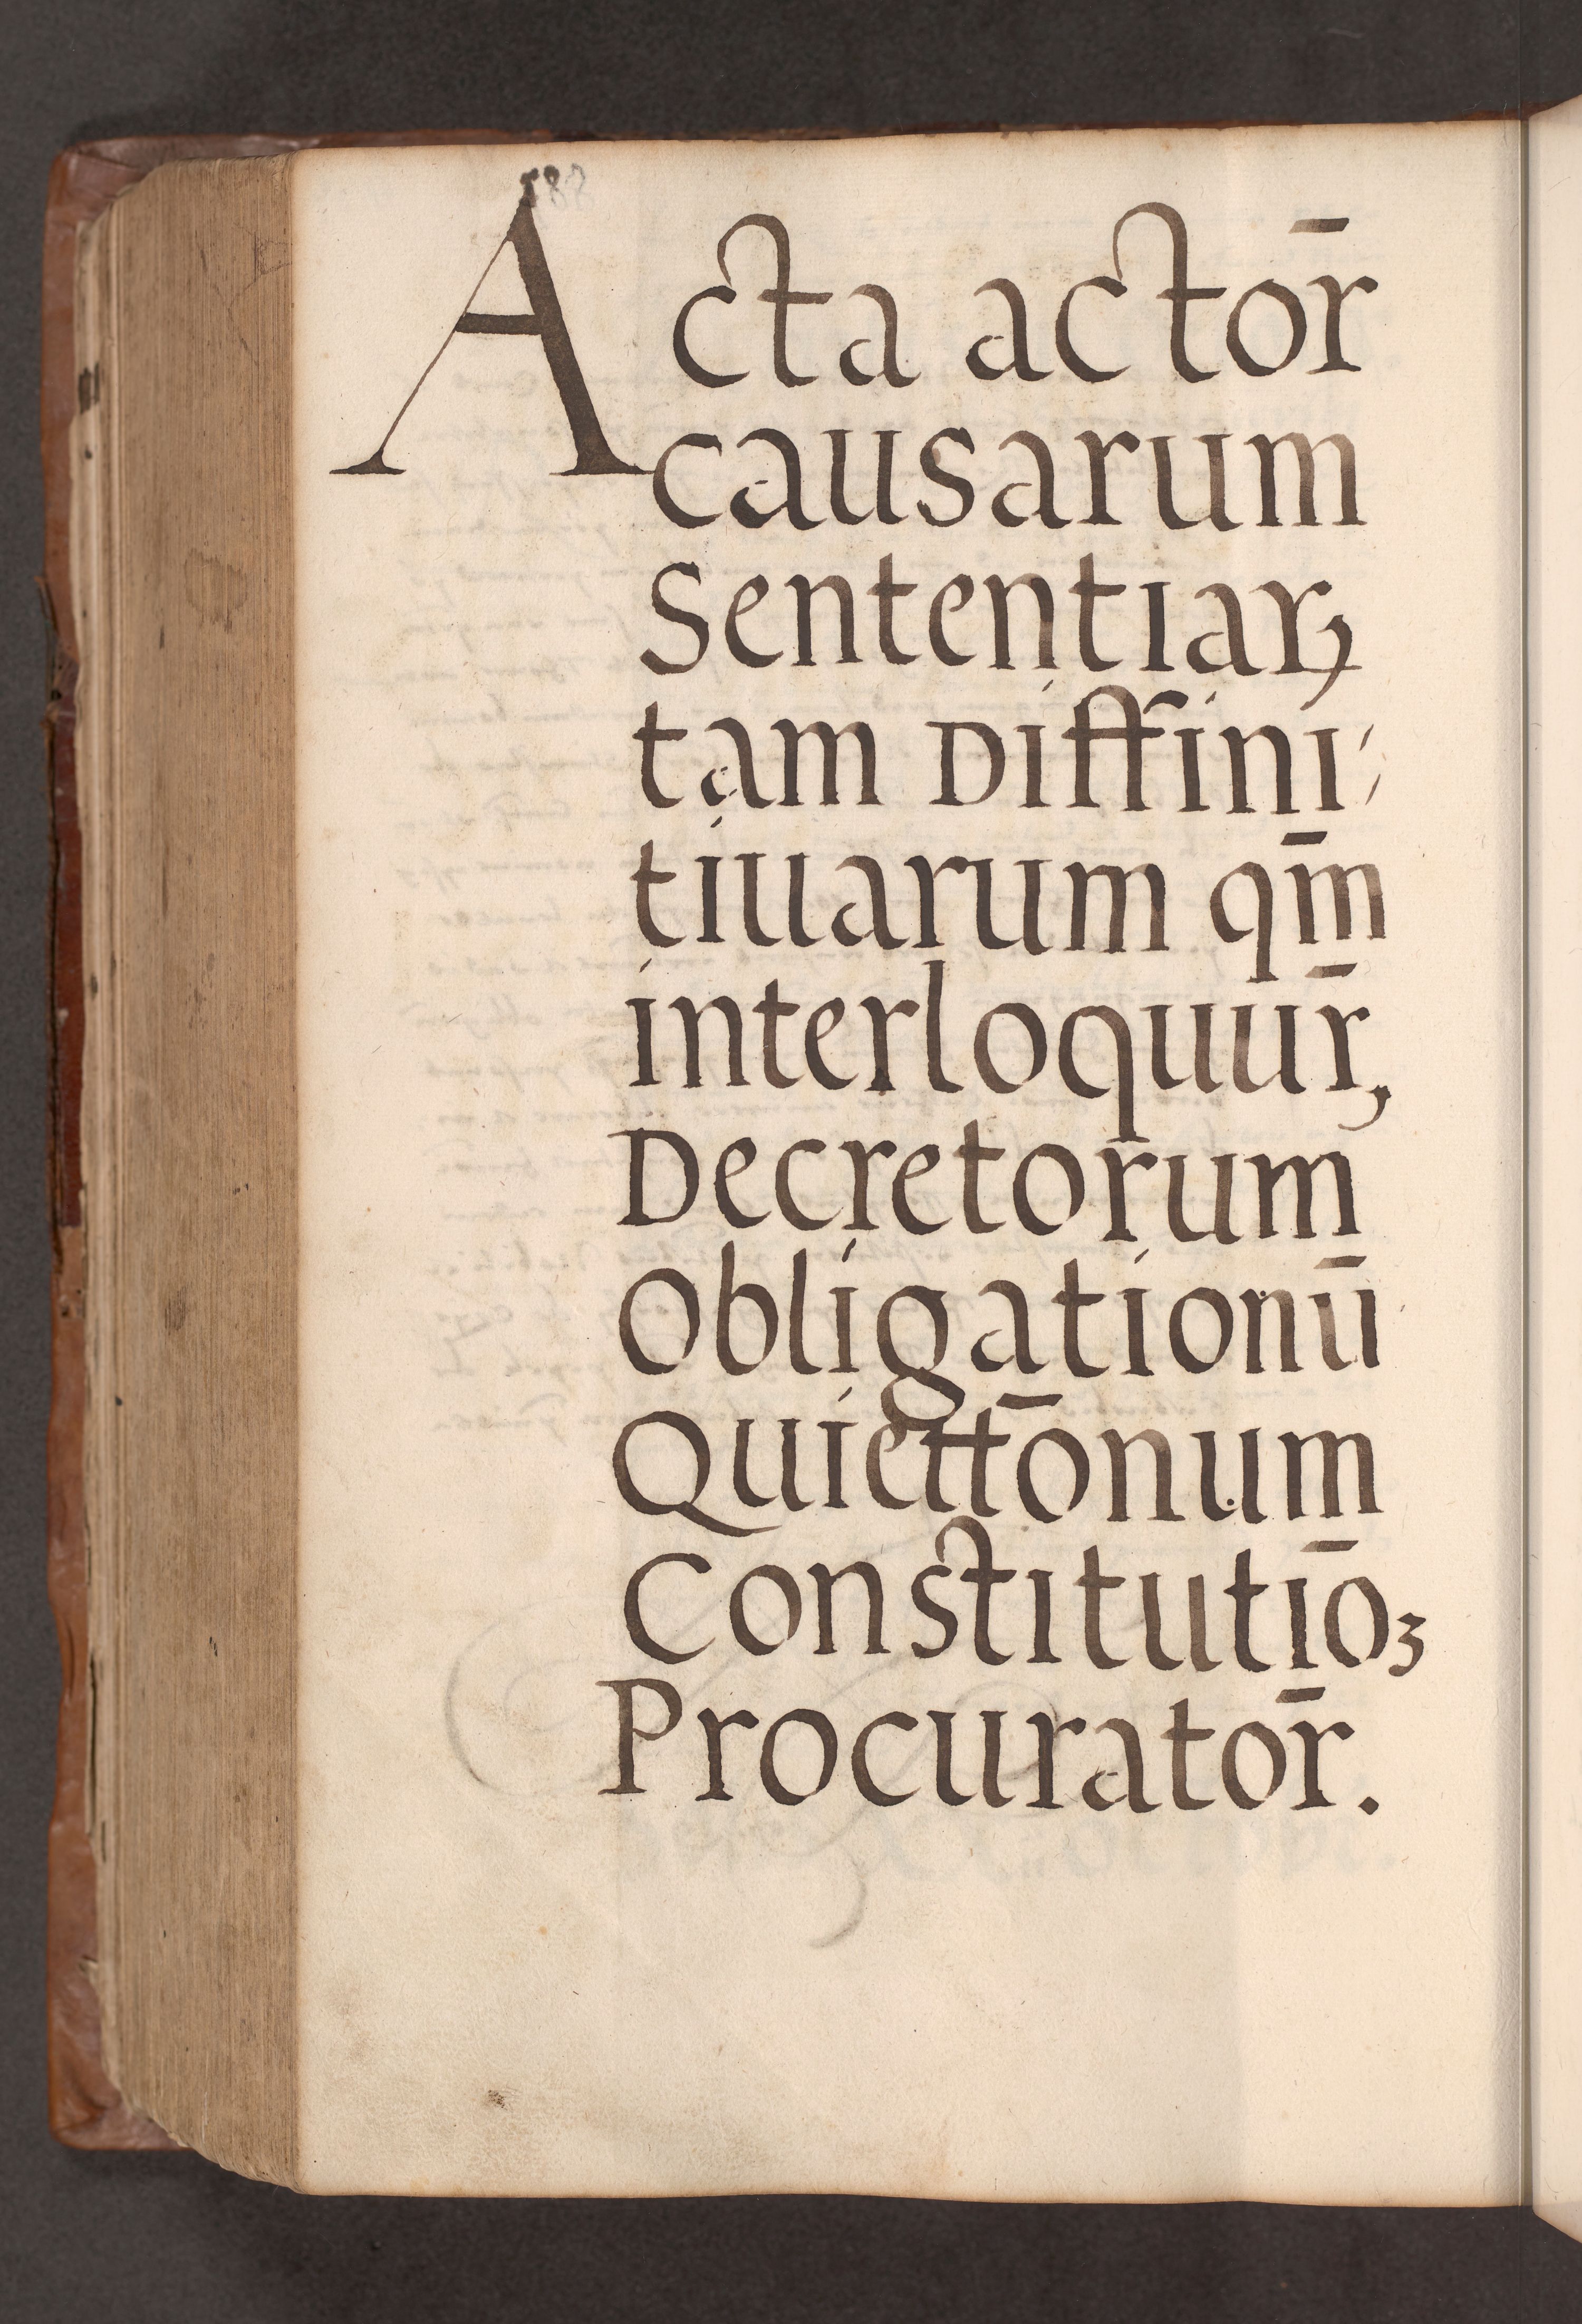 Acta actor̄
causarum
Sententiarꝝ
tam Diffini⸗
tiuarum qm̄
interloquur̄,
Decretorum
Obligationū
Quiettōnum
Constitutiōꝫ
Procurator̄.